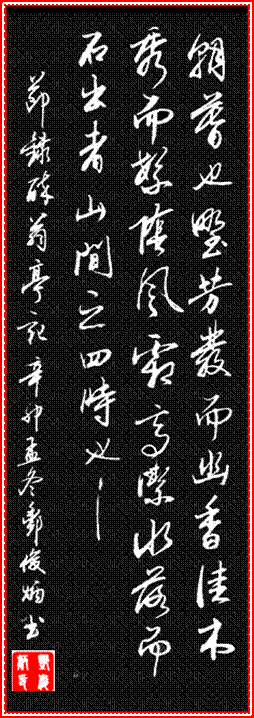 朝暮也野芳發而幽香佳木
秀而繁陰風霜高潔水落而
石出者山間之四時也
節錄醉翁亭記辛卯孟冬鄭俊炳书